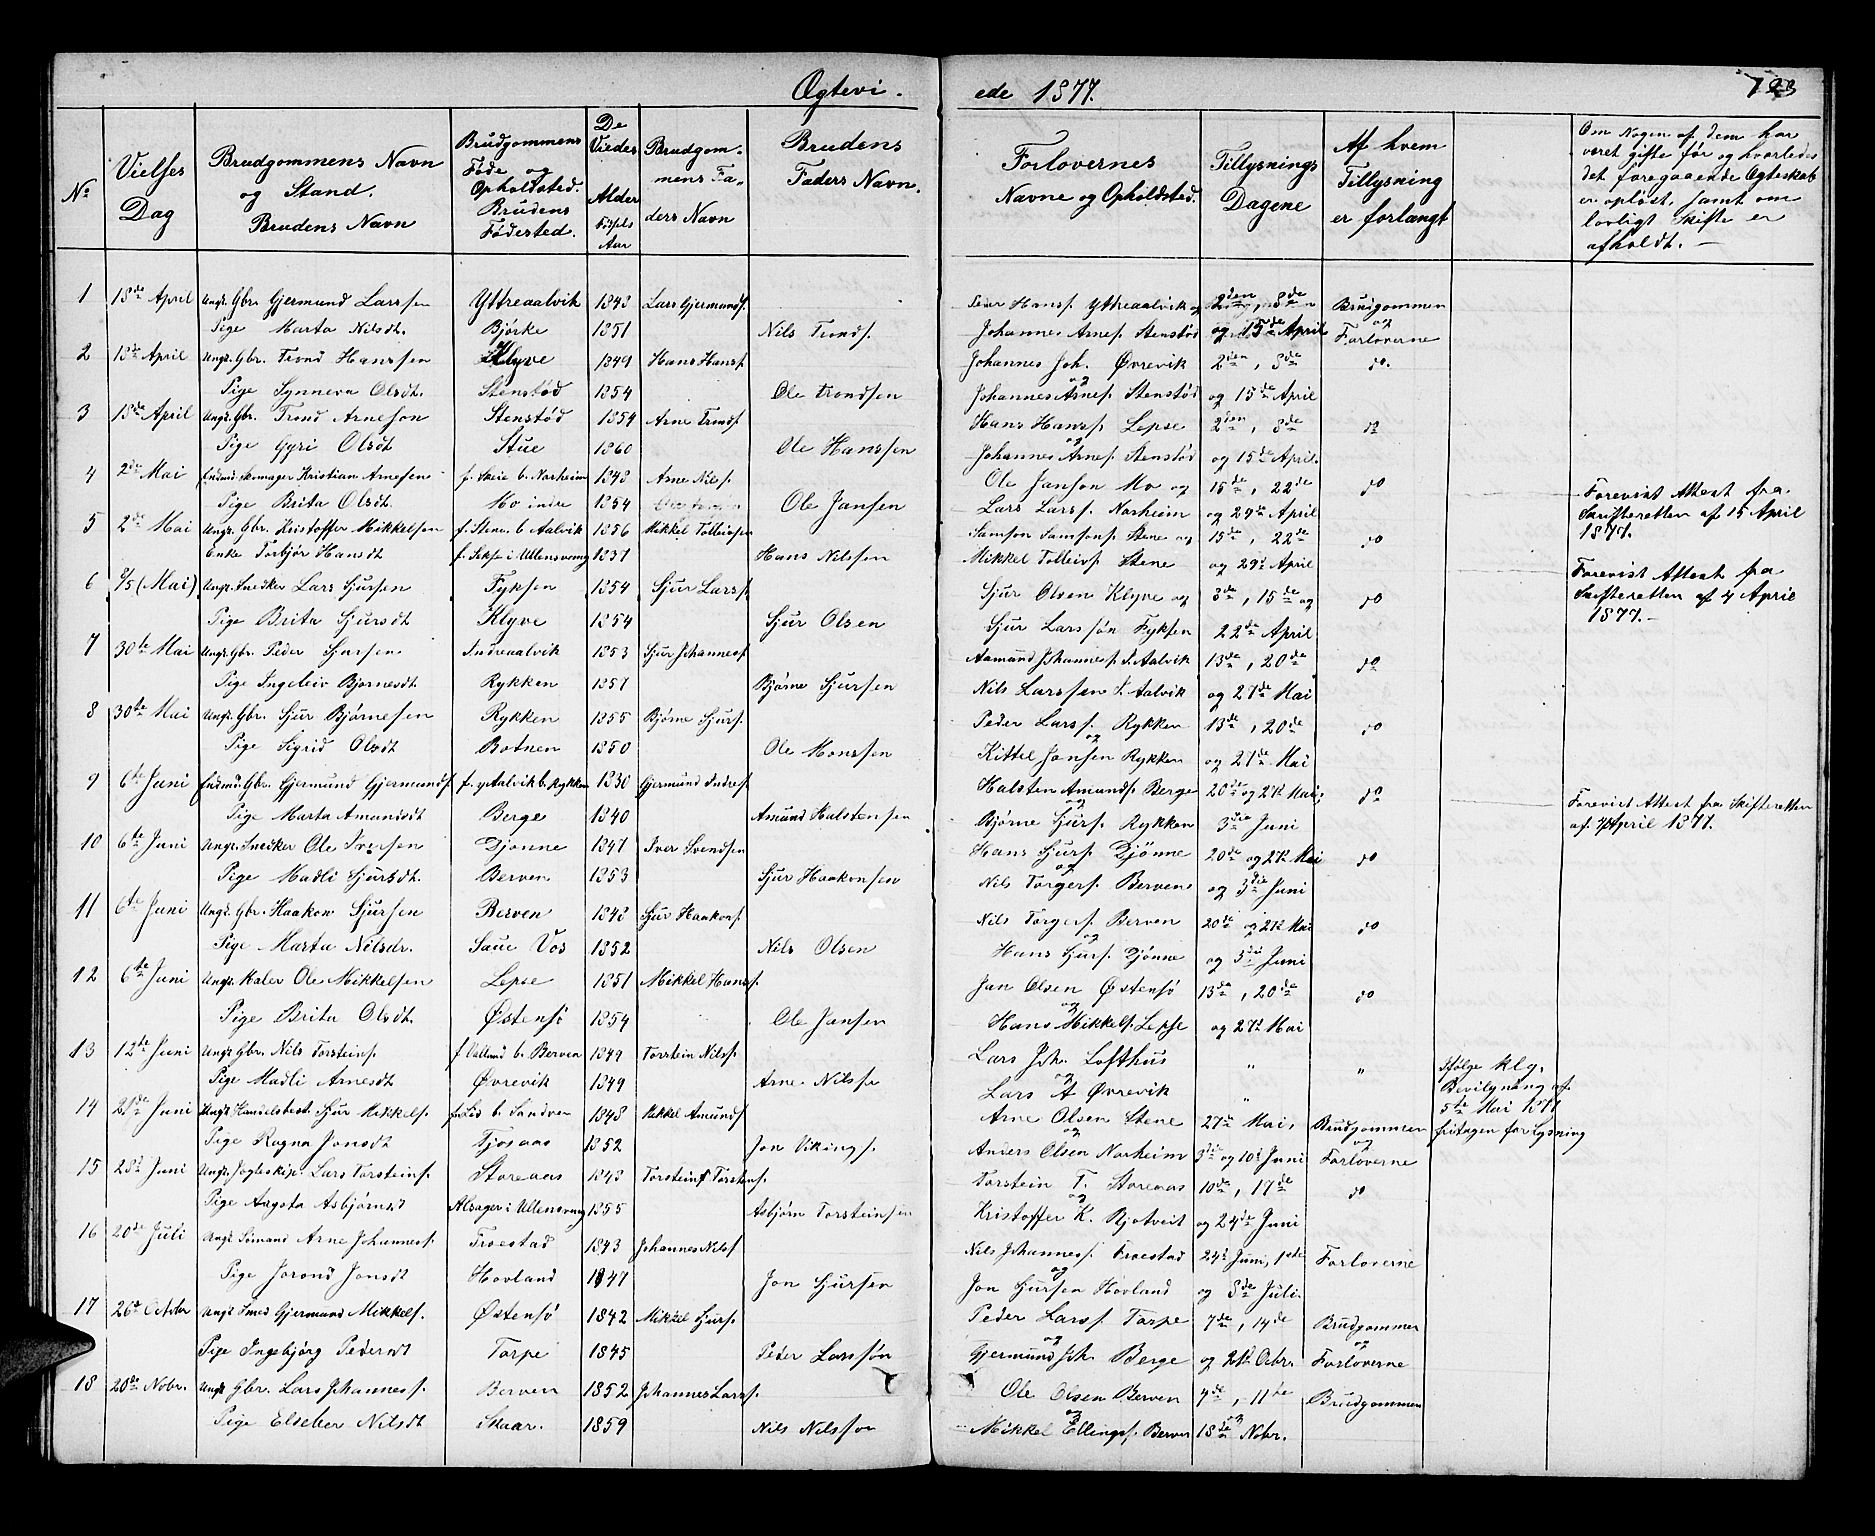 Ægtevi-
ede 1877.
123
No
Vielses Dag
Brudgommens Navn og Stand. Brudens Navn
Brudgommens Føde og Opholdsted. Brudens Fødested.
De Viedes Alder Fødsels Aar
Brudgommens Faders Navn
Brudens Faders Navn.
Forlovernes Navne og Opholdsted.
Tillysnings Dagene
Af hvem Tillysning er forlangt
Om Nogen af dem har været gifte før og hvorledes det foregaaende Ægteskab er opløst, samt om lovligt skifte er afholdt. —
1 18de April Ungk. Gbr. Gjermund Larssen Yttreaalvik 1848 Lars Gjermunds. Peder Hanss. Yttreaalvik og 2den, 8de Brudgommen og
Pige Marta Nilsdt. Bjørke 1851 Nils Tronds. Johannes Arnes. Stenstød og 15de April Forloverne
2 18de April Ungk. Gbr. Trond Hanssen Klyve 1849 Hans Hanss. Johannes Joh. Øvrevik og 2den, 8de do.
Pige Synneva Olsdt. Stenstød 1854 Ole Trondsen Johannes Arnes. Stenstød og 15de April
3 18de April Ungk. Gbr. Trond Arneson Stenstød 1854 Arne Tronds. Hans Hanss. Lepse og 2den, 8de do
Pige Gyri Olsdt Stue 1860 Ole Hanssen Johannes Arnes. Stenstød og 15de April.
4 2de Mai Enkmd. Skomager Kristian Arnesen f. Skeie b. Norheim 1848 Arne Nils. Ole Janson Mo og 15de, 22de do Forevist Attest fra Skifteretten af 15 April 1877.
Pige Brita Olsdt Mo indre 1854 Ole Jansen Lars Larss. Norheim og 29de April
5 2de Mai Ungk. Gbr. Kristoffer Mikkelsen f. Stene b. Aalvik 1856 Mikkel Tolleivsen Samson Samsons. Stene og 15de, 22de do
Enke Torbjør Hansdt f. Sekse i Ullensvang 1837 Hans Nilssen Mikkel Tolleivs. Stene og 29de April Forevist Attest fra Skifteretten af 4 April 1877.—
6 8/5 (Mai) Ungk. Snedker Lars Sjursen Fyksen 1854 Sjur Larss. Sjur Olsen Klyve og 8de, 15de og do
Pige Brita Sjursdt Klyve 1854 Sjur Olsen Sjur Larssøn Fyksen 22de April
7 30te Mai Ungk. Gbr. Peder Sjursen Indreaalvik 1853 Sjur Johanness. Aamund Johannes. I. Aalvik 13de, 20de do
Pige Ingeleiv Bjørnesdt Rykken 1857 Bjørne Sjursen Nils Larssen I. Aalvik og 27de Mai
8 30te Mai Ungk. Gbr. Sjur Bjørnesen Rykken 1855 Bjørne Sjurs. Peder Larss. Rykken og 13de, 20de do
Pige Sigrid Olsdt Botnen 1850 Ole Monssen Kittel Jansen Rykken og 27de Mai
9 6te Juni Enkmd. Gbr. Gjermund Gjermunds. f. y. Aalvik b. Rykken 1830 Gjermund Indres. Halsten Amunds. Berge og 20de og 27de Mai, do Forevist Attest fra Skifteretten
Pige Marta Amundsdt Berge 1840 Amund Halstensen Bjørne Sjurs. Rykken 3die Juni af April 1877.
10 6te Juni Ungk. Snedker Ole Iversen Djønne 1847 Iver Svendsen Hans Sjurs. Djønne og 20de og 27de Mai do
Pige Madli Sjursdt. Berven 1853 Sjur Haakonsen Nils Torgers. Berven og 3die Juni
11 6te Juni Ungk. Gbr. Haakon Sjursen Berven 1848 Sjur Haakons. Nils Torgers. Berven og 20de og 27de Mai do
Pige Marta Nilsdr. Saue Vos 1852 Nils Olsen Hans Sjurs. Djønne og 3die Juni
12 6te Juni Ungk. Maler Ole Mikkelsen Lepse 1851 Mikkel Hanss. Jan Olsen Østensø og 13de, 20de do
Pige Brita Olsdt. Østensø 1854 Ole Jansen Hans Mikkels. Lepse og 27de Mai
13 12te Juni Ungk. Gbr. Nils Torsteins. f. Valland b. Berven 1849 Torstein Nilss. Lars Joh. Lofthus og " " Ifølge klg. Bevilgning af 5te Mai 1877 fritagen for Lysning
Pige Madli Arnesdt Øvrevik 1849 Arne Nilssen Lars A Øvrevik "
14 21de Juni Ungk. Handelsbest. Sjur Mikkels. f. Lid b. Sandven 1848 Mikkel Amunds. Arne Olsen Stene og 27de Mai, Brudgommen og
Pige Ragna Jonsdt Tjosaas 1852 Jon Vikings. Anders Olsen Norheim 3die og 10de Juni Forloverne
15 28de Juni Ungk. Jagteskip. Lars Torsteins. Storeaas 1843 Torstein Torsteins. Torstein T. Storeaas og 10de, 17de do
Pige Angsta Asbjørnsdt Alsager i Ullensvang 1855 Asbjørn Torsteinsen Kristoffer K. Rjotveit og 24de Juni
16 20de Juli Ungk. Sømand Arne Johanness. Froestad 1843 Johannes Nils. Nils Johanness. Froestad og 24de Juni, 1ste Forloverne
Pige Jorond Jonsdt Hovland 1847 Jon Sjursen Jon Sjursen Hovland og 8de Juli.
17 26de Octobr Ungk. Smed Gjermund Mikkels. Østensø 1842 Mikkel Sjurs. Peder Larss. Torpe og 7de, 14de Brudgommen og
Pige Ingebjørg Pedersdt Torpe 1845 Peder Larssøn Gjermund Joh. Berge og 21de Octbr. Forloverne
18 20de Nobr. Ungk. Gbr. Lars Johanness. Berven 1852 Johannes Larss. Ole Olsen Berven og 4de, 11te og Brudgommen
Pige Elseber Nilsdt Skaar. 1859 Nils Nilsson Mikkel Ellings. Berven 18de Nobr.